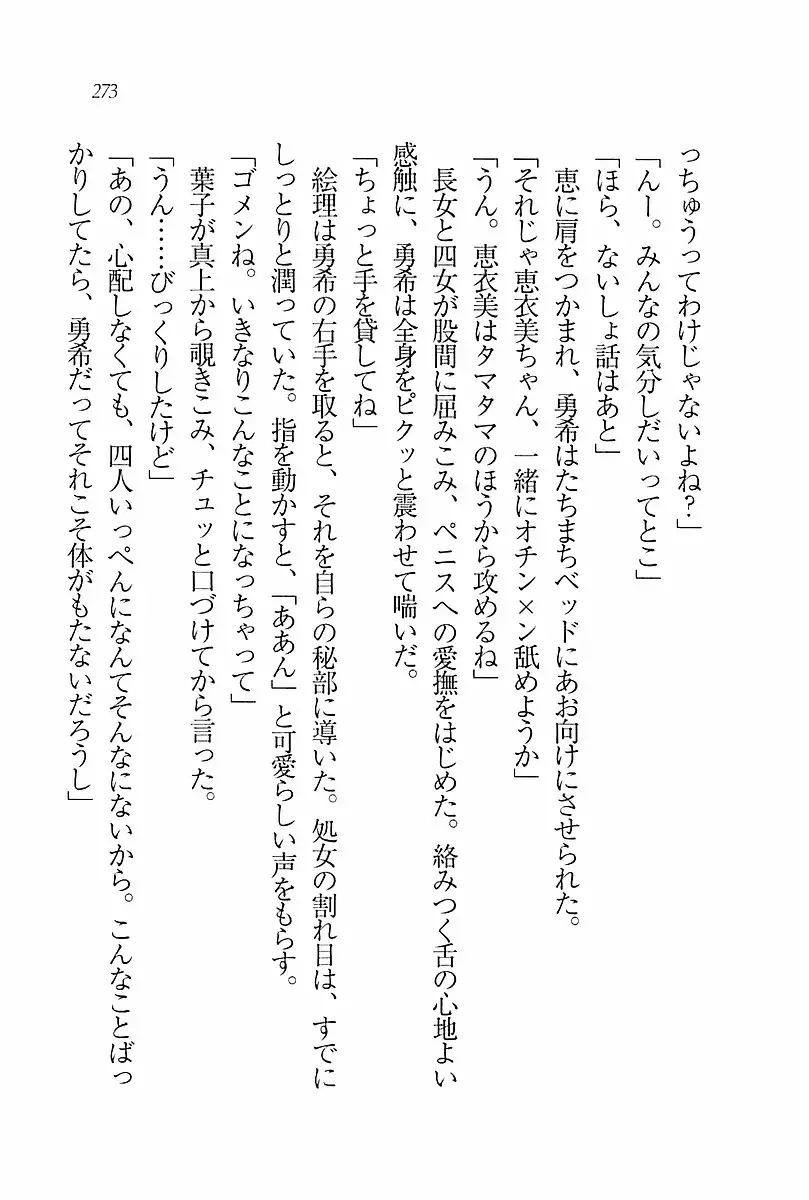 273
っちゅうってわけじゃないよね？」
「んー。みんなの気分しだいってとこ」
「ほら、ないしょ話はあと」
恵に肩をつかまれ、勇希はたちまちベッドにあお向けにさせられた。
「それじゃ恵衣美ちゃん、一緒にオチン×ン舐めようか」
「うん。恵衣美はタマタマのほうから攻めるね」
長女と四女が股間に屈みこみ、ペニスへの愛撫をはじめた。絡みつく舌の心地よい
感触に、勇希は全身をピクッと震わせて喘いだ。
「ちょっと手を貸してね」
絵理は勇希の右手を取ると、それを自らの秘部に導いた。処女の割れ目は、すでに
しっとりと潤っていた。指を動かすと、「ああん」と可愛らしい声をもらす。
「ゴメンね。いきなりこんなことになっちゃって」
葉子が真上から覗きこみ、チュッと口づけてから言った。
「うん……びっくりしたけど」
「あの、心配しなくても、四人いっぺんになんてそんなにないから。こんなことばっ
かりしてたら、勇希だってそれこそ体がもたないだろうし」